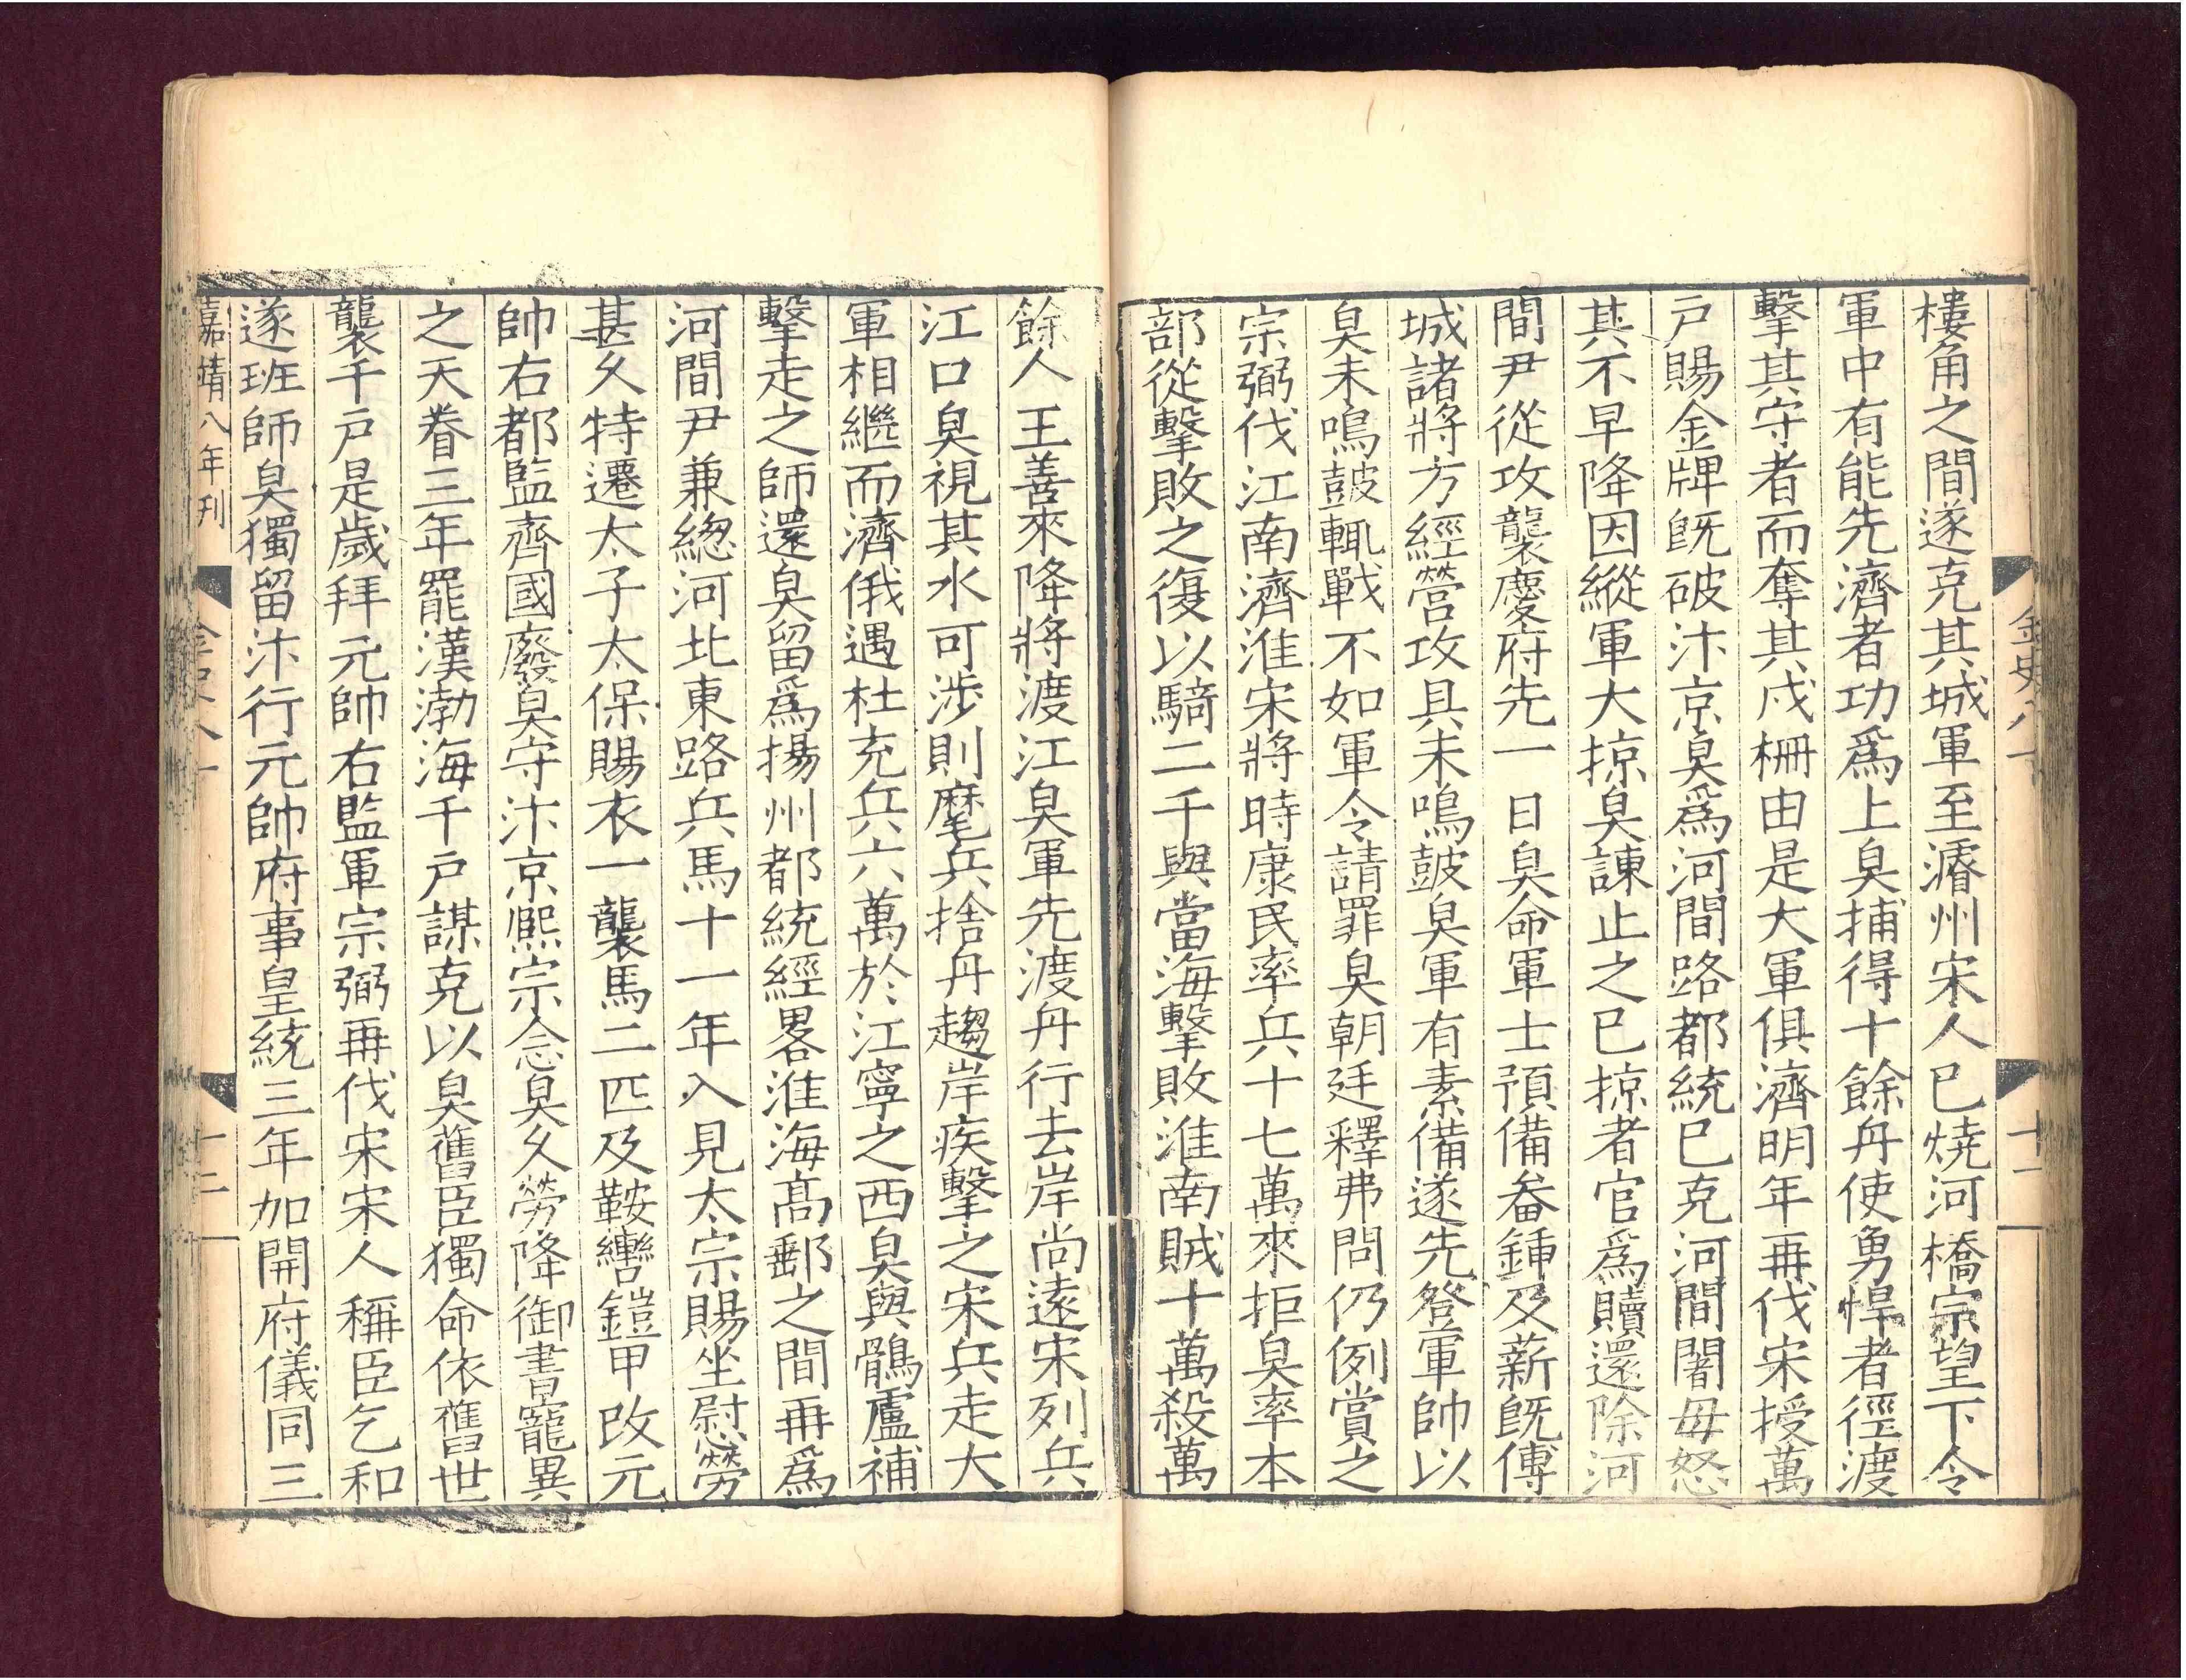 樓角之間遂克其城軍至濬州宋人已燒河橋宗望下令
軍中有能先濟者功爲上臭捕得十餘舟使勇悍者徑渡
擊其守者而奪其戍柵由是大軍俱濟明年再伐宋授萬
戸賜金牌旣破汴京臭爲河間路都統已克河間闍毋怒
其不早降因縱軍大掠臭諫止之已掠者官爲贖還除河
間尹從攻襲慶府先一日臭命軍士預備畚鍤及薪旣傅
城諸將方經營攻具未鳴鼓臭軍有素備遂先登軍帥以
臭未鳴鼓輒戰不如軍令請罪臭朝廷釋弗問仍例賞之
宗弼伐江南濟淮宋將時康民率兵十七萬來拒臭率本
部從擊敗之復以騎二千與當海擊敗淮南賊十萬殺萬
餘人王善來降將渡江臭軍先渡舟行去岸尚遠宋列兵
江口臭視其水可涉則麾兵捨舟趨岸疾擊之宋兵走大
軍相繼而濟俄遇杜充兵六萬於江寧之西臭與鶻盧補
擊走之師還臭留爲揚州都統經畧淮海髙郵之間再爲
河間尹兼緫河北東路兵馬十一年入見太宗賜坐慰勞
甚久特遷太子太保賜衣一襲馬二匹及鞍轡鎧甲改元
帥右都監齊國廢臭守汴京熈宗念臭久勞降御書寵異
之天眷三年罷漢渤海千戸謀克以臭舊臣獨命依舊世
襲千戸是歲拜元帥右監軍宗弼再伐宋宋人稱臣乞和
遂班師臭獨留汴行元帥府事皇統三年加開府儀同三
嘉靖八年刊
金史八十
十二